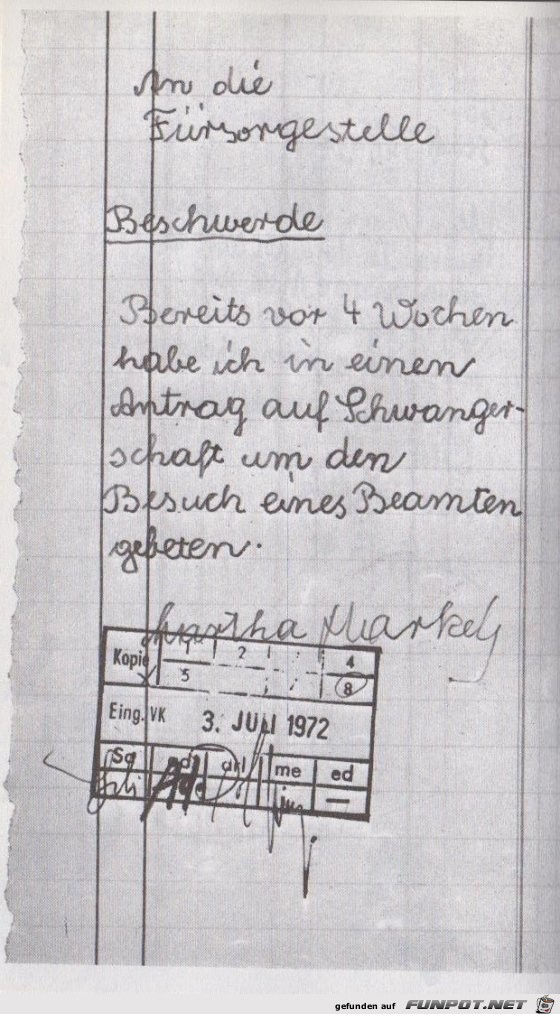 An die
Fürsorgestelle
Beschwerde
Bereits vor 4 Wochen
habe ich in einen
Antrag auf Schwanger-
schaft um den
Besuch eines Beamten
gebeten.
Martha
Kopie 1 2 4
5 8
Eing. VK 3. JULI 1972
Sa me ed
gefunden auf FUNPOT.NET